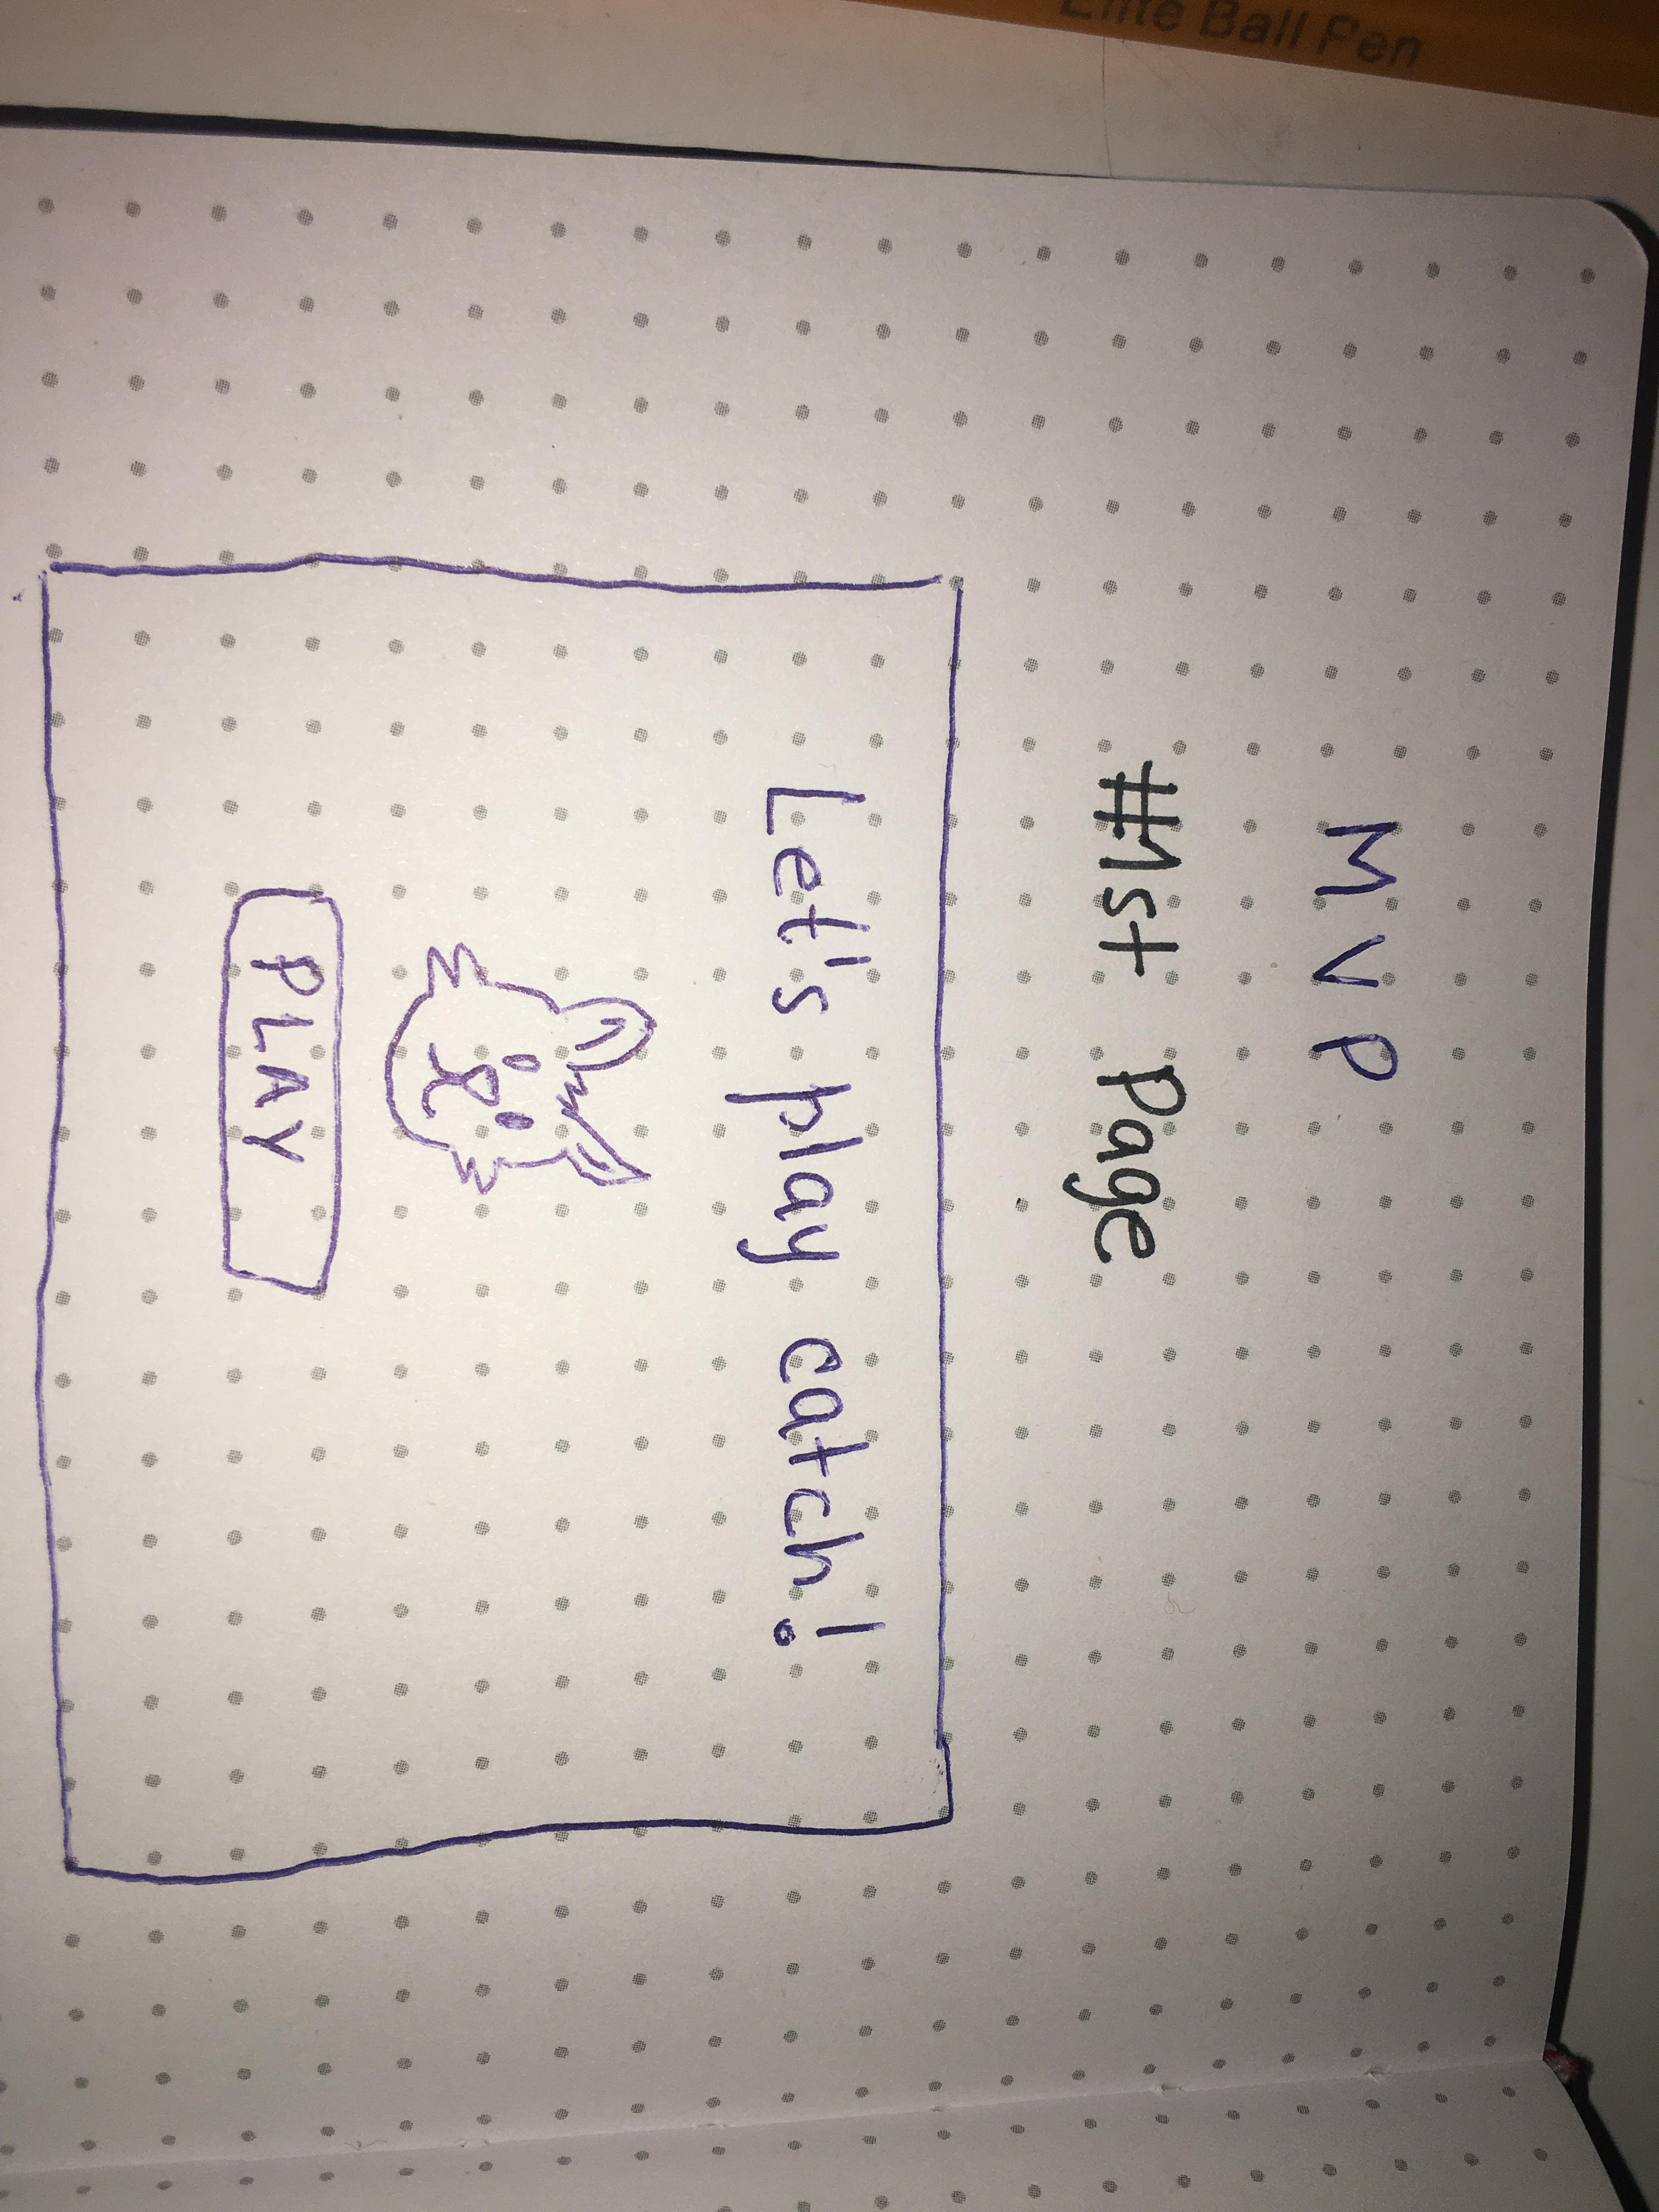 Elite Ball Pen
MVP
#1st Page
Let's play catch!
PLAY